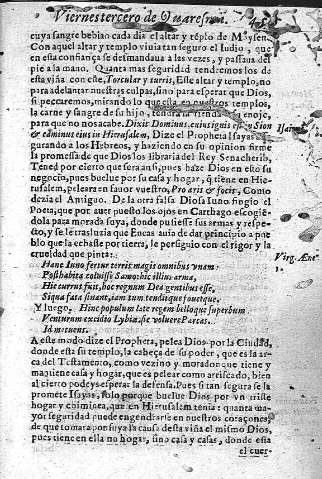 Viernes tercero de Quaresma.
cuya sangre bebian cada dia el altar y tēplo de Moysen
Con aquel altar y templo viuia tan seguro el Iudio, que
en esta confiança se desmandaua a las vezes, y passaua del
pie a la mano. Quanta mas seguridad tendremos los de
esta viña con este, Torcular y turris, Este altar y templo, no
para adelantar nuestras culpas, sino para esperar que Dios,
si peccaremos, mirando lo que esta en nuestros templos,
la carne y sangre de su hijo, tendra la rienda
para que no nos acabe. Dixit Dominus, cuius ignis est in Sion
& caminus eius in Hierusalem, Dize el Propheta Isayas
gurando a los Hebreos, y haziendo en su opinion firme
la promessa de que Dios los libraria del Rey Senacherib,
Tened por cierto que sera assi, pues haze Dios en esto su
negocio, pues buelue por su casa y hogar, q̄ tiene en Hie-
rusalem, peleara en fauor vuestro, Pro aris & focis, Como
dezia el Antiguo. De la otra falsa Diosa Iuno fingio el
Poeta, que por auer puesto los ojos en Carthago escogiē-
dola para morada suya, donde pusiesse sus armas y respe-
cto, y se le trasluzia que Eneas auia de dar principio a pue
blo que la echasse por tierra, le persiguio con el rigor y la
crueldad que pinta:
Hanc Iuno fertur terris magis omnibus vnam
Posthabita coluisse Samo: hic illius arma,
Hic currus fuit, hoc regnum Dea gentibus esse,
Siqua fata sinant, iam tum tenditque fouetque.
Y luego, Hinc populum late regem belloque superbum
Venturum excidio Lybiæ, sic voluere Parcas.
Id metuens.
A este modo dize el Propheta, pelea Dios por la Ciudad,
donde esta su templo, la cabeça de su poder, que es la ar-
ca del Testamento, como vezino y morador que tiene y
mantiene casa y hogar, que es pelear como arriscado, bien
al cierto podeys esperar la defensa. Pues si tan segura se la
promete Isayas, solo porque buelue Dios por vn triste
hogar y chiminea, que en Hierusalem tenia: quanta ma-
yor seguridad puede engendrarse en nuestros coraçones,
de que tomara por suya la causa desta viña el mismo Dios,
pues tiene en ella no hogar, sino casa y casas, donde esta
el cuer-
Isai
Virg. Æne
1.